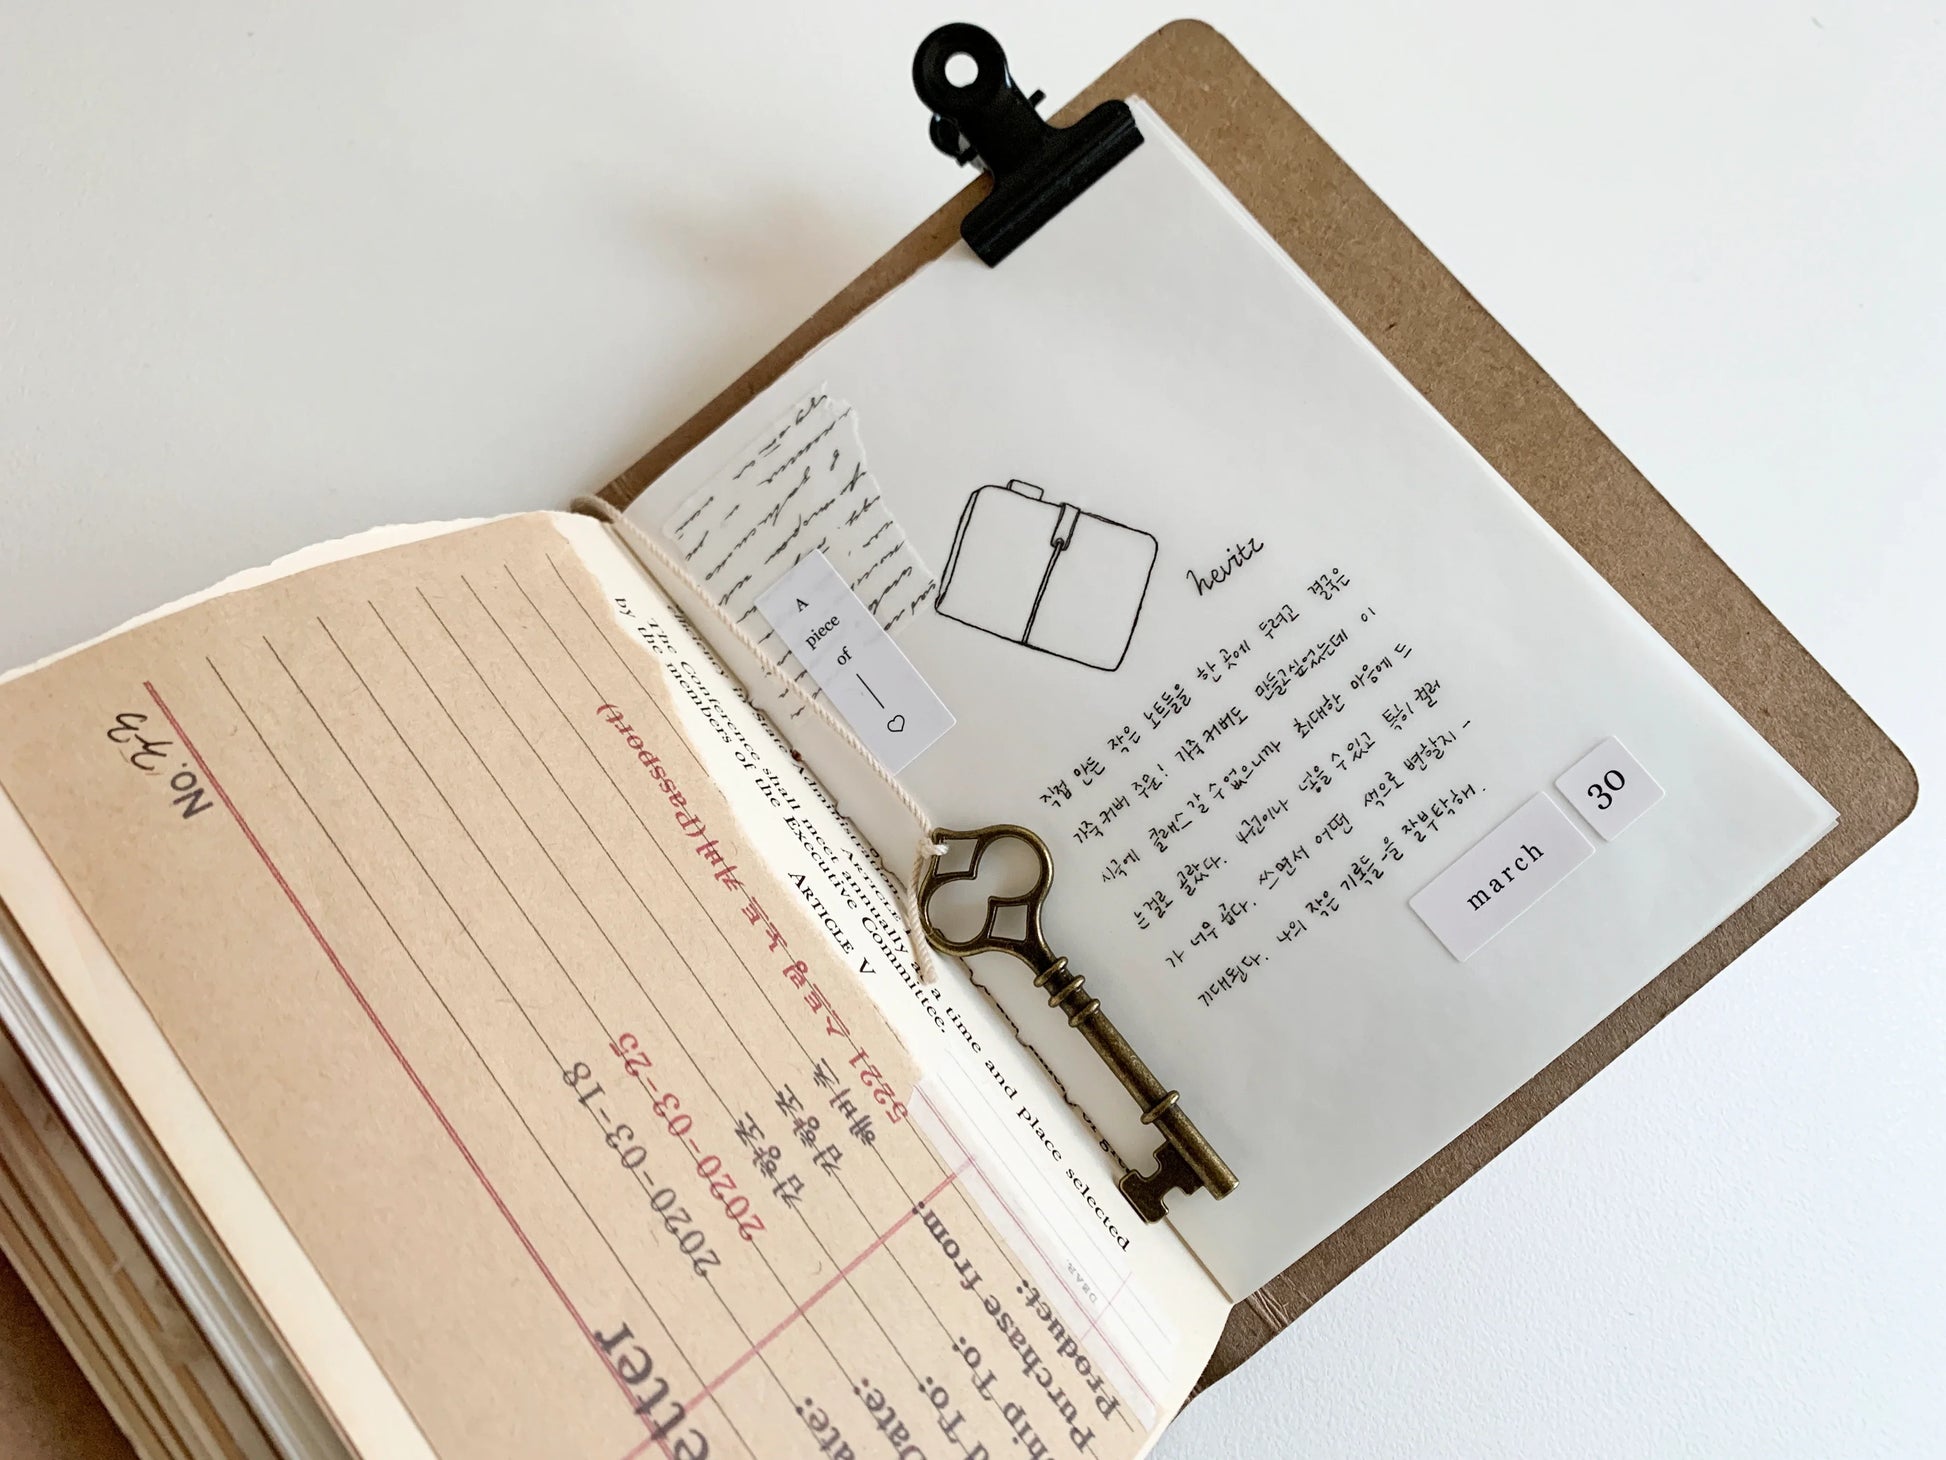 No. 743
5221 스트링 노트 커버(passport)
해비츠
김향조
김향조
2020-03-25
2020-03-18
etter
Product:
Purchase from:
hip To:
d To:
Date:
ate:
DEAR.
ARTICLE V
The Conference shall meet annually at a time and place selected
by the members of the Executive Committee.
A
piece
of
hevitz
직접 만든 작은 노트들을 한 곳에 두려고 결국은
가죽커버 주문! 가죽커버도 만들고싶었는데 이
시국에 클래스 갈 수 없으니까 최대한 마음에 드
는걸로 골랐다. 4권이나 넣을 수 있고 특히 컬러
가 너무 곱다. 쓰면서 어떤 색으로 변할지 -
기대된다. 나의 작은 기록들-을 잘부탁해.
march
30